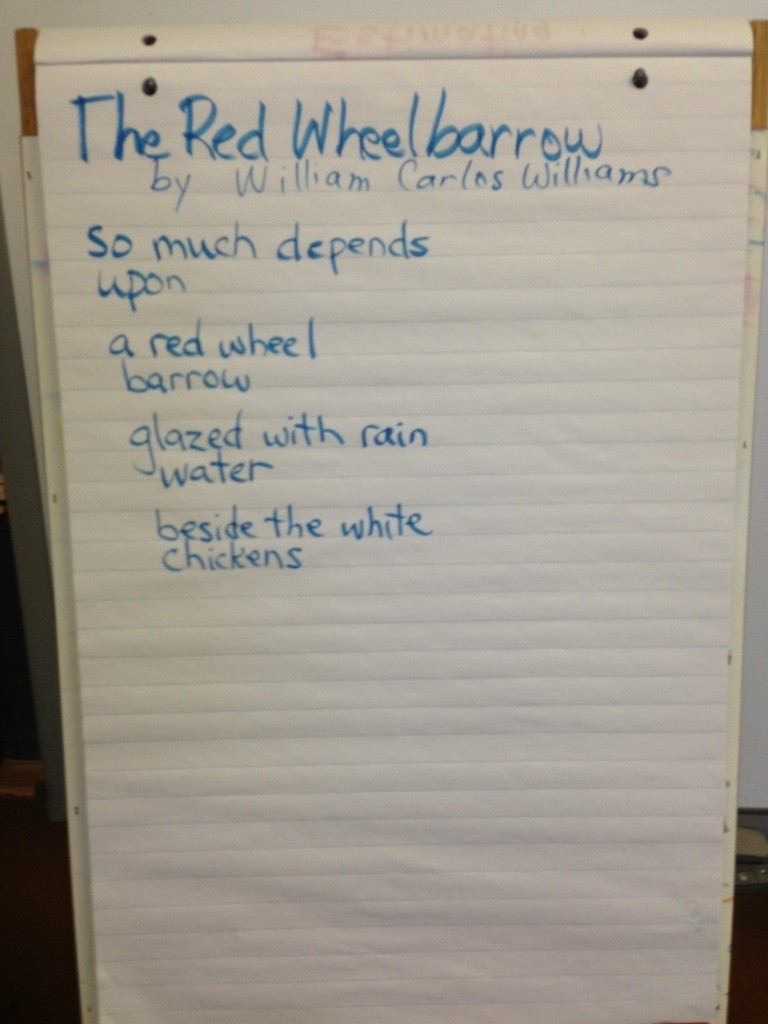 Estimating
The Red Wheelbarrow
by William Carlos Williams
so much depends
upon
a red wheel
barrow
glazed with rain
water
beside the white
chickens